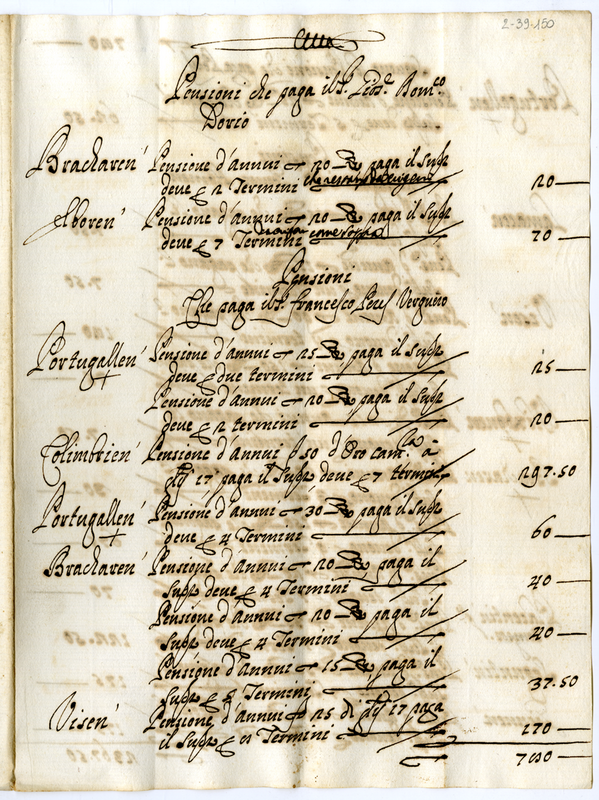 2-39-150
Pensioni che paga il Sr.
Dorio
Bracharen' Pensione d'annui 20 paga il Supr
deve 2 Termini 20
Eboren' Pensione d'annui 20 paga il Supr
deve 7 Termini come sopra 70
Pensioni
Che paga il Sr. Francesco Vergueiro
Portugallen' Pensione d'annui 25 paga il Supr
deve due termini 25
Pensione d'annui 20 paga il Supr
deve 2 termini 20
Colimbrien' Pensione d'annui 50 d'Oro cam. à
17 paga il Supr deve 7 termini 297.50
Portugallen' Pensione d'annui 30 paga il Supr
deve 4 Termini 60
Bracharen' Pensione d'annui 20 paga il
Supr deve 4 Termini 40
Pensione d'annui 20 paga il
Supr deve 4 Termini 40
Pensione d'annui 15 paga il
Supr Termini 37.50
Visen' Pensione d'annui 25 di 17 paga
il Supr Termini 170